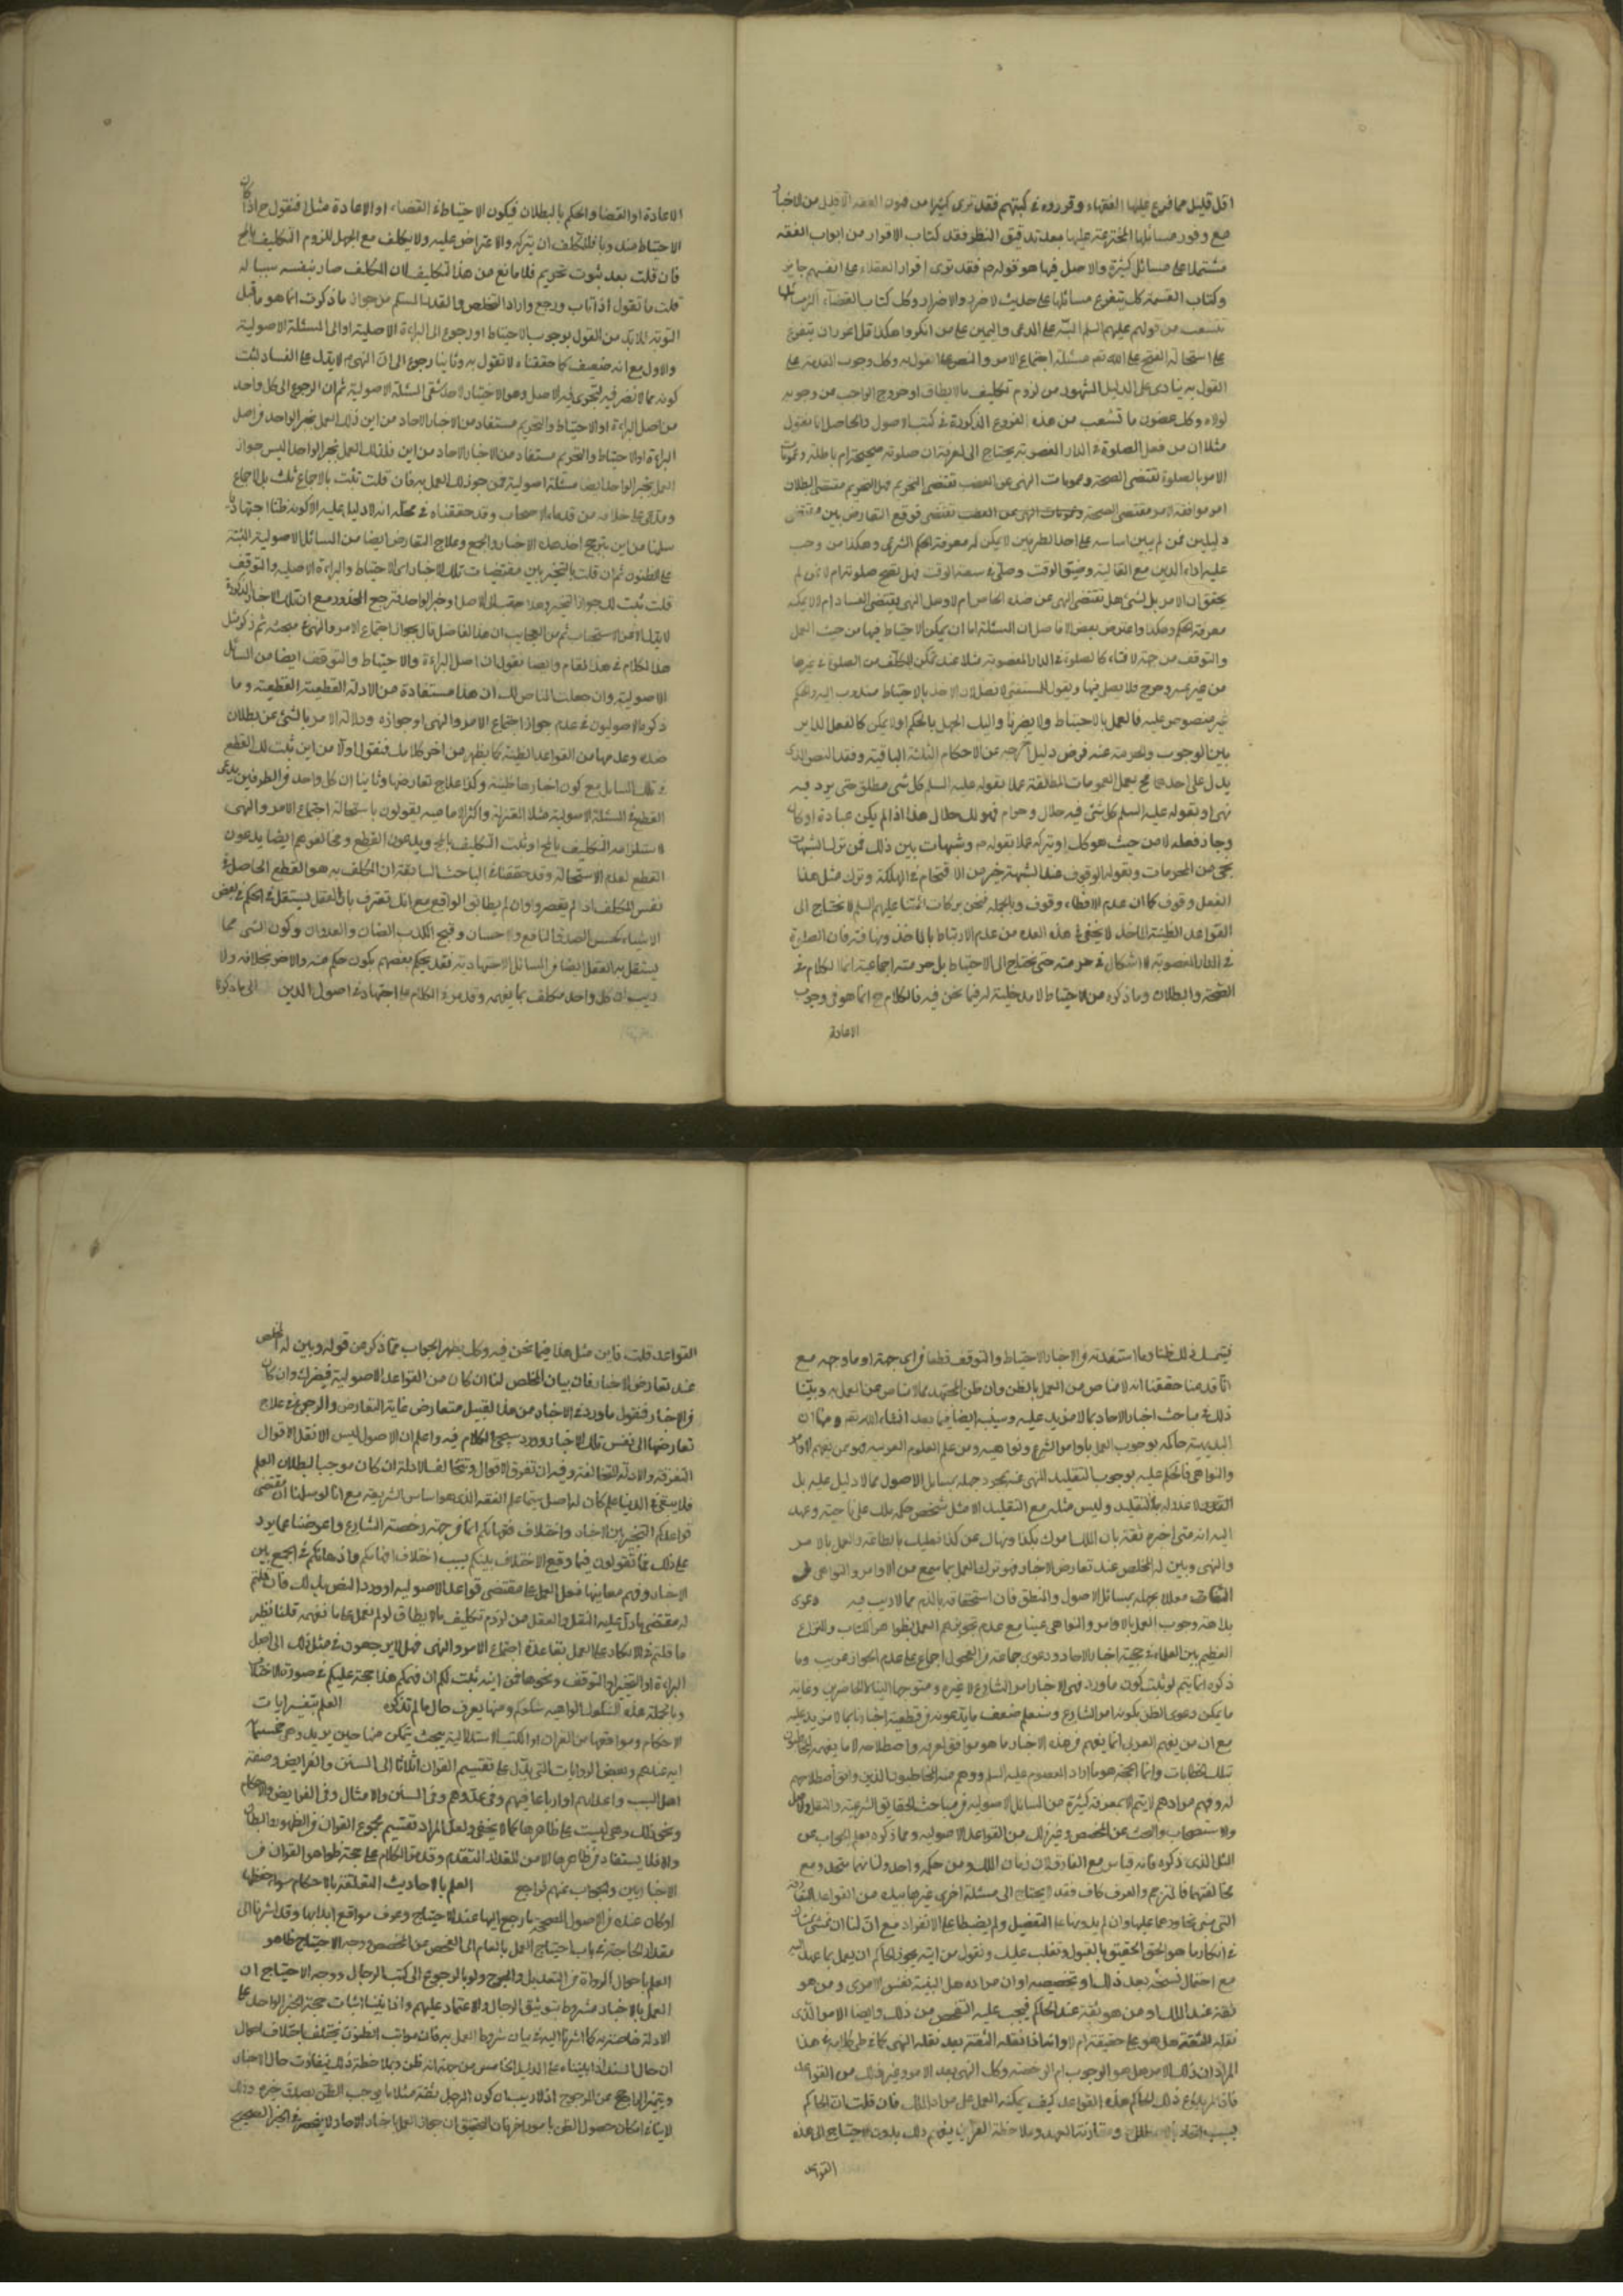 اقل قليل مما فرع عليها الفقهاء وقرروه في كتبهم فقد ترى كثيرا من فنون الفقه الاقليل من الاخبار
مع وفور مسائلها المخترعة عليها بعد تدقيق النظر فقد كتاب الاقرار من ابواب الفقه
مشتملا على مسائل كثيرة والاصل فيها هو قولهم فقد ترى اقرار العقلاء على انفسهم جايز
وكتاب القسمة كل يتفرع مسائلها على حديث لا ضرر ولا ضرار وكل كتاب القضاء
تنشعب من قولهم عليهم السلم البينة على المدعى واليمين على من انكر وهكذا قل
على استحالة القبح على الله تعم مسئلة اجتماع الامر والنهى
القول به ينادى على الدليل المشهور من لزوم تكليف ما لا يطاق او خروج الواجب عن وجوبه
لولاه وكل غصون ما تشعب من هذه الفروع المذكورة في كتب الاصول والحاصل انا نقول
مثلا ان من فعل الصلوة في الدار المغصوبة يحتاج الى معرفة ان صلوته صحيحة ام باطلة وعمومات
الامر بالصلوة تقتضى الصحة وعمومات النهى عن الغصب تقتضى التحريم فهل التحريم مقتضى البطلان
ام موافقة الامر مقتضى الصحة وعمومات النهى عن الغصب تقتضى فوقع التعارض بين مقتضى
دليلين فمن لم يبين اساسه على احد الطرفين لا يمكن له معرفة الحكم الشرعى وهكذا من وجب
عليه اداء الدين مع المطالبة وضيق الوقت وصلى في سعة الوقت فهل تصح صلوته ام لا فمن لم
يحقق ان الامر بالشئ هل تقتضى النهى عن ضده الخاص ام لا وهل النهى يقتضى الفساد ام لا لا يمكنه
معرفة الحكم وهكذا واعترض بعض الافاضل ان المسئلة اما ان يمكن الاحتياط فيها من حيث العمل
والتوقف من جهة الافتاء كالصلوة في الدار المغصوبة مثلا عند تمكن المكلف من الصلوة في غيرها
من غير عسر وحرج فلا يصل فيها ويقول للمستفتى لا تصل لان الاخذ بالاحتياط مندوب اليه والحكم
غير منصوص عليه فالعمل بالاحتياط ولا يضرنا واليك الجهل بالحكم اولا يمكن كالفعل الداير
بين الوجوب والحرمة عند فرض دليل خرجه عن الاحكام الثلثة الباقية وفقد النص الذى
يدل على احدهما فح يعمل بالعمومات المطلقة عملا بقوله عليه السلم كل شئ مطلق حتى يرد فيه
نهى او بقوله عليه السلم كل شئ فيه حلال وحرام فهو لك حلال هذا اذا لم يكن عبادة او كان
وجاز فعله لا من حيث هو كل او يتركه عملا بقوله م وشبهات بين ذلك فمن ترك الشبهات
نجى من المحرمات وبقوله الوقوف عند الشبهة خير من الاقتحام في الهلكة وترك مثل هذا
الفعل وقوف كما ان عدم الافتاء وقوف وبالجملة فنحن ببركات ائمتنا عليهم السلم لا نحتاج الى
القواعد الظنية المأخذ لا يخفى في هذه العدة من عدم الارتباط بالماخذ فان الصلوة
في الدار المغصوبة لا اشكال في حرمته حتى يحتاج الى الاحتياط بل حرمته اجماعية انما الكلام في
الصحة والبطلان وما ذكره من الاحتياط لا مدخلية له فيما نحن فيه فالكلام ح انما هو في وجوب
الاعادة
الاعادة او القضا والحكم بالبطلان فيكون الاحتياط في القضاء او الاعادة مثلا فنقول ح اذا كان
الاحتياط مندوبا فللمكلف ان يتركه والاعتراض عليه ولا يكلف مع الجهل للزوم التكليف بالمح
فان قلت بعد ثبوت تحريم فلا مانع من هذا التكليف لان المكلف صار بنفسه سببا له
قلت ما تقول اذا تاب ورجع واراد التخلص فالقدر المسلم من جواز ما ذكرت انما هو ما قبل
التوبة فلا بد من القول بوجوب الاحتياط او رجوع الى البراءة الاصلية او الى المسئلة الاصولية
والاول مع انه ضعيف كما حققناه لا تقول به وثانيا رجوع الى ان النهى م لا يدل على الفساد لثبت
كونه مما لا نص فيه لتجرى فيه الاصل وهو الاختيار لاحد شقى المسئلة الاصولية ثم ان الرجوع الى كل واحد
من اصل البراءة او الاحتياط والتحريم مستفاد من الاخبار الاحاد من اين ذلك العمل بخبر الواحد فر اصل
البراءة اولا احتياط والتحريم مستفاد من الاخبار الاحاد من اين فلذلك العمل بخبر الواحد اليس جواز
العمل بخبر الواحد ايضا مسئلة اصولية فمن جوز لك العمل به فان قلت ثبت بالاجماع ثلث بل الاجماع
ومدعى على خلافه من قدماء الاصحاب وقد حققناه في محله انه لا دليل عليه الا كونه ظنا اجتهاديا
سلمنا من اين يترجح اخذ هذه الاخبار والجمع وعلاج التعارض ايضا من المسائل الاصولية المبتنية
على الظنون ثم ان قلت بالتخيير بين مقتضيات تلك الاخبار اى الاحتياط والبراءة الاصلية والتوقف
قلت ثبت لك جواز التخيير وهذا
هذا الكلام في هذا المقام وايضا نقول ان اصل البراءة والاحتياط والتوقف ايضا من المسائل
الاصولية وان جعلت المناص لك ان هذا مستفادة من الادلة القطعية القطعية وما
ذكره الاصوليون في عدم جواز اجتماع الامر والنهى او جوازه ودلالة الامر بالشئ عن بطلان
ضده وعدمها من القواعد الظنية كما يظهر من اخر كلامك فنقول اولا من اين ثبت لك القطع
في تلك المسائل مع كون اخبارها ظنية وكذا علاج تعارضها وثانيا ان كل واحد فر الطرفين يدعى
القطع في المسئلة الاصولية مثلا المعتزلة واكثر الامامية يقولون باستحالة اجتماع الامر والنهى
لاستلزامه التكليف بالمح او ثبت التكليف بالمح ويدعون القطع ومخالفوهم ايضا يدعون
القطع لعدم الاستحالة وقد حققنا في المباحث السابقة ان المكلف به هو القطع الحاصل في
نفس المكلف اذا لم يقصر وان لم يطابق الواقع مع انك تعترف بان العقل يستقل في الحكم في بعض
الاشياء كحسن الصدق النافع والاحسان وقبح الكذب الضار والعدوان وكون الشئ مما
يستقل به العقل ايضا فر المسائل الاجتهادية فقد يحكم بعضهم بكون حكم منه والاخر بخلافه ولا
ريب ان كل واحد مكلف بما يفهمه وقد مر في الكلام على اجتهاد في اصول الدين
فيتمسك في ذلك ظنا وما استفدته فر الاخبار الاحتياط والتوقف قطعا فر اى جهة او ما وجه مع
انا قد منا حققنا انه لا مناص من العمل بالظن وان ظن المجتهد مما لا مناص عن العمل به وبينا
ذلك في مباحث اخبار الاحاد بما لا مزيد عليه وسنبينه ايضا فيما بعد انشاء الله تعم ومنها ان
البديهية حاكمة بوجوب العمل باوامر الشرع ونواهيه ومن علم العلوم العربية فهو ممن يفهم الاوامر
والنواهى فالحكم عليه بوجوب التقليد المنهى عنه بمجرد جهله بمسايل الاصول مما لا دليل عليه بل
اليه انه متى اخبره ثقة بان الملك امرك بكذا ونهاك عن كذا فعليك بالطاعة والعمل بالامر
والنهى وبين له المخلص عند تعارض الاخبار فهو ترك العمل بما سمع من الاوامر والنواهى فر
الثقات معللا بجهله بمسائل الاصول والمنطق فان استحقاقه بالذم مما لا ريب فيه دعوى
بداهة وجوب العمل بالاوامر والنواهى عينا مع عدم تجويزهم العمل بظواهر الكتاب والنزاع
العظيم بين العلماء في حجية اخبار الاحاد ودعوى جماعة فر الفحول اجماع على عدم الجواز غريب وما
ذكره انما يتم لو ثبت كون ما ورد فر الاخبار امر الشارع لا غيره ومتوجها الينا لا الحاضرين وغاية
ما يمكن دعوى الظن بكونه امر الشارع وستعلم ضعف ما يدعونه فر قطعية اخبارنا بما لا مزيد عليه
مع ان من يفهم العربى انما يفهم فر هذه الاخبار ما هو موافق لعرفه واصطلاحه لا ما يفهمه المخاطبون
بتلك الخطابات وانما الحجة هو ما اراد المعصوم عليه السلم ووهم منه المخاطبون الذين وافق اصطلاحهم
له وفهم مرادهم لا يتم الا بمعرفة كثيرة من المسائل الاصولية فر مباحث الحقايق الشرعية
والاستصحاب والبحث عن المخصص وغير ذلك من القواعد الاصولية ومما ذكره يعلم الجواب عن
المثل الذى ذكره فانه قياس مع الفارق لان زمان الملك ومن حكمه واحد ولسانهما متحد ومع
مخالفتهما فالمترجم والعرف كاف فقد لا يحتاج الى مسئلة اخرى غيرها بيك من القواعد
في انكار ما هو الحق الحقيق بالقبول ونقلب عليك ونقول من اين يجوز للحاكم ان يعمل بما عهد اليه
مع احتمال نسخه بعد ذلك او تخصيصه اوان مراده هل البينة نفس الامرى ومن هو
ثقة عند الملك او من هو ثقة عند الحاكم فيجب عليه التفحص من ذلك وايضا الامر الذى
نقله الثقة هل هو على حقيقته ام لا وانه اذا نقله الثقة بعد نقله النهى
المراد ان ذلك الامر هل هو الوجوب ام الرخصة وكل النهى بعد الامر وغير ذلك من القواعد
فاذا لم يبلغ ذلك الحاكم هذه القواعد كيف يمكنه العمل على مراد الملك فان قلت ان الحاكم
بسبب اتحاد زمانه ومقارنة العهد وملاحظة القرائن يفهم ذلك بدون الاحتياج الى هذه
القواعد
القواعد قلت فاين مثل هذا فيما نحن فيه وكل يظهر الجواب عما ذكر من قوله وبين له المخلص
عند تعارض الاخبار فان بيان المخلص لنا ان كان من القواعد الاصولية فيضرك وان كان
فر الاخبار فنقول ما ورد في الاخبار من هذا القبيل متعارض غاية التعارض والرجوع في علاج
تعارضها الى نفس تلك الاخبار دور وسيجئ الكلام فيه واعلم ان الاصول ليس الا نقل الاقوال
المتفرقة والادلة المتخالفة وفيه ان تفرق الاقوال وتخالف الادلة ان كان موجبا لبطلان العلم
فلا يبقى في الدنيا علم كان له اصل سيما علم الفقه الذى هو اساس الشريعة مع انا لو سلمنا ان مقتضى
قواعدكم التخيير بين الاخبار واختلاف فقهائكم انما فر جهة رخصة الشارع واعرضنا عما يرد
على ذلك فما تقولون فيما وقع الاختلاف بينكم بسبب اختلاف افهامكم واذهانكم في الجمع بين
الاخبار وفهم معانيها فعل العمل على مقتضى قواعد الاصولية او ورد النص بذلك فان قلتم
له مقتضى ما دل عليه النقل والعقل من لزوم تكليف ما لا يطاق لو لم نعمل على ما نفهمه قلنا نظير
ما قلتم في الانكار على العمل بقاعدة اجتماع الامر والنهى فهل لا يرجعون في مثل ذلك الى اصل
البراءة او التخيير او التوقف ونحوها فمن اين ثبت لكم ان فهمكم هذا حجة عليكم في صورة الاختلاف
وبالجملة هذه الشكوك الواهية شكوكم ومنها يعرف حال ما لم نذكره العلم بتفسير ايات
الاحكام ومواقعها من القران او الكتب الاستدلالية بحيث يتمكن منها حين يريد وهى خمسمأة
اية عندهم وبعض الروايات التى يدل على تقسيم القران اثلاثا الى السنن والفرايض وصفة
اهل البيت واعدائهم او ارباعا فيهم وفى عدوهم وفى السنن والامثال وفى الفرايض والاحكام
ونحو ذلك وهى ليست على ظاهرها كما لا يخفى ولعل المراد تقسيم مجموع القران فر الظهور والبطان
والا فلا يستفاد فر ظاهرها الا من المقدار المتقدم وقد مر الكلام على حجية ظواهر القران فر
الاخباريين والجواب عنهم فراجع العلم بالاحاديث المتعلقة بالاحكام سواء حفظها
او كان عنده فر الاصول المصححة ما رجع اليها عند الاحتياج وعرف مواقع ابوابها وقد اشرنا الى
مقدار الحاجة في باب احتياج العمل بالعام الى الفحص عن المخصص ووجه الاحتياج ظاهر
العلم باحوال الرواة فر التعديل والجرح ولو بالرجوع الى كتب الرجال ووجه الاحتياج ان
العمل بالاخبار مشروط بتوثيق الرجال والاعتماد عليهم واذا بنينا اثبات حجية الخبر الواحد على
الادلة خاصة به كما اشرنا اليه في بيان شروط العمل به فان مراتب الظنون يختلف باختلاف احوال
ان حال السند اذا بنيناه على الدليل الخامس من جهة انه ظن وبملاحظة ذلك يتفاوت حال الاخبار
ويتميز الراجح عن المرجوح اذ لا ريب ان كون الرجل ثقة مثلا مما يوجب الظن بصدق خبره وذلك
لا ينافى امكان حصول الظن بامور اخر فان التحقيق ان جواز العمل باخبار الاحاد لا ينحصر فر الخبر الصحيح